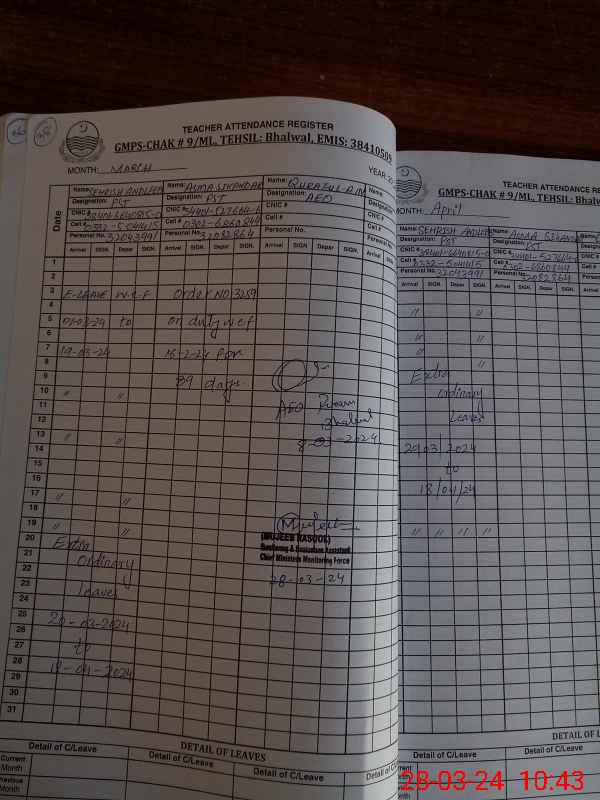 TEACHER ATTENDANCE REGISTER
GMPS-CHAK # 9/ML, TEHSIL: Bhalwal, EMIS: 38410505
MONTH: MARCH
YEAR-20
Date
Name: SEHRISH ANDLEEB
Designation: PST
CNIC #
Cell #
Personal No. 32043991
Arrival SIGN. Depar SIGN.
Name: ALMA SIKANDAR
Designation: PST
CNIC #
Cell # 0302-6860844
Personal No. 32082864
Arrival SIGN. Depar SIGN.
Name: QURATUL-AIN
Designation: AEO
CNIC #
Cell #
Personal No.
Arrival SIGN. Depar SIGN.
Name
Designation:
CNIC #
Cell #
Personal
Arrival SI
1
2
3 E-LEAVE w.e.f Order NO 3259
4
5 01-03-24 to on duty w.e.f
6
7 19-03-24 16-2-24 for
8
9 89 days
10 " "
11 AEO
12 Bhalwal
13 " " 8-03-2024
14
15
16
17 " "
18
19 " "
(MUJEEB RASOOL)
Monitoring & Evaluation Assistant
Chief Ministers Monitoring Force
28-03-24
20 Extra
21 Ordinary
22
23 leaves
24
25 20-03-2024
26
27 to
28 18-04-2024
29
30
31
DETAIL OF LEAVES
Detail of C/Leave Detail of C/Leave Detail of C/Leave Detail
Current Month
Previous Month
TEACHER ATTENDANCE RE
GMPS-CHAK # 9/ML, TEHSIL: Bhalw
MONTH: April
Name: SEHRISH ANDLEEB
Designation: PST
CNIC #
Cell # 0332-5041415
Personal No. 32043991
Arrival SIGN. Depar SIGN.
Name: ALMA SIKAN
Designation: PST
CNIC #
Cell # 0302-6860844
Personal No. 32082864
Arrival SIGN. Depar SIGN.
" "
" "
" "
Extra "
Ordinary
Leaves
20/03/2024
to
18/04/24
" " " "
DETAIL OF L
Detail of C/Leave Detail of C/L
28-03-24 10:43